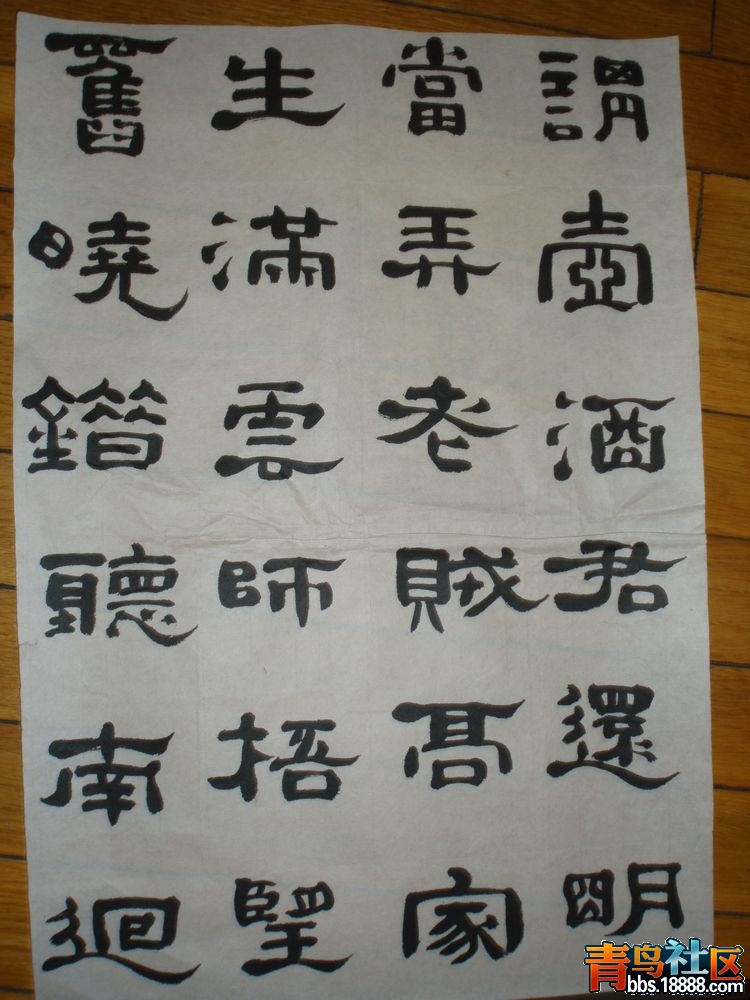 謂壺酒君還明
當弄老賊高家
生滿雲師捂望
舊曉錯聽南迴
青鸟社区
bbs.18888.com